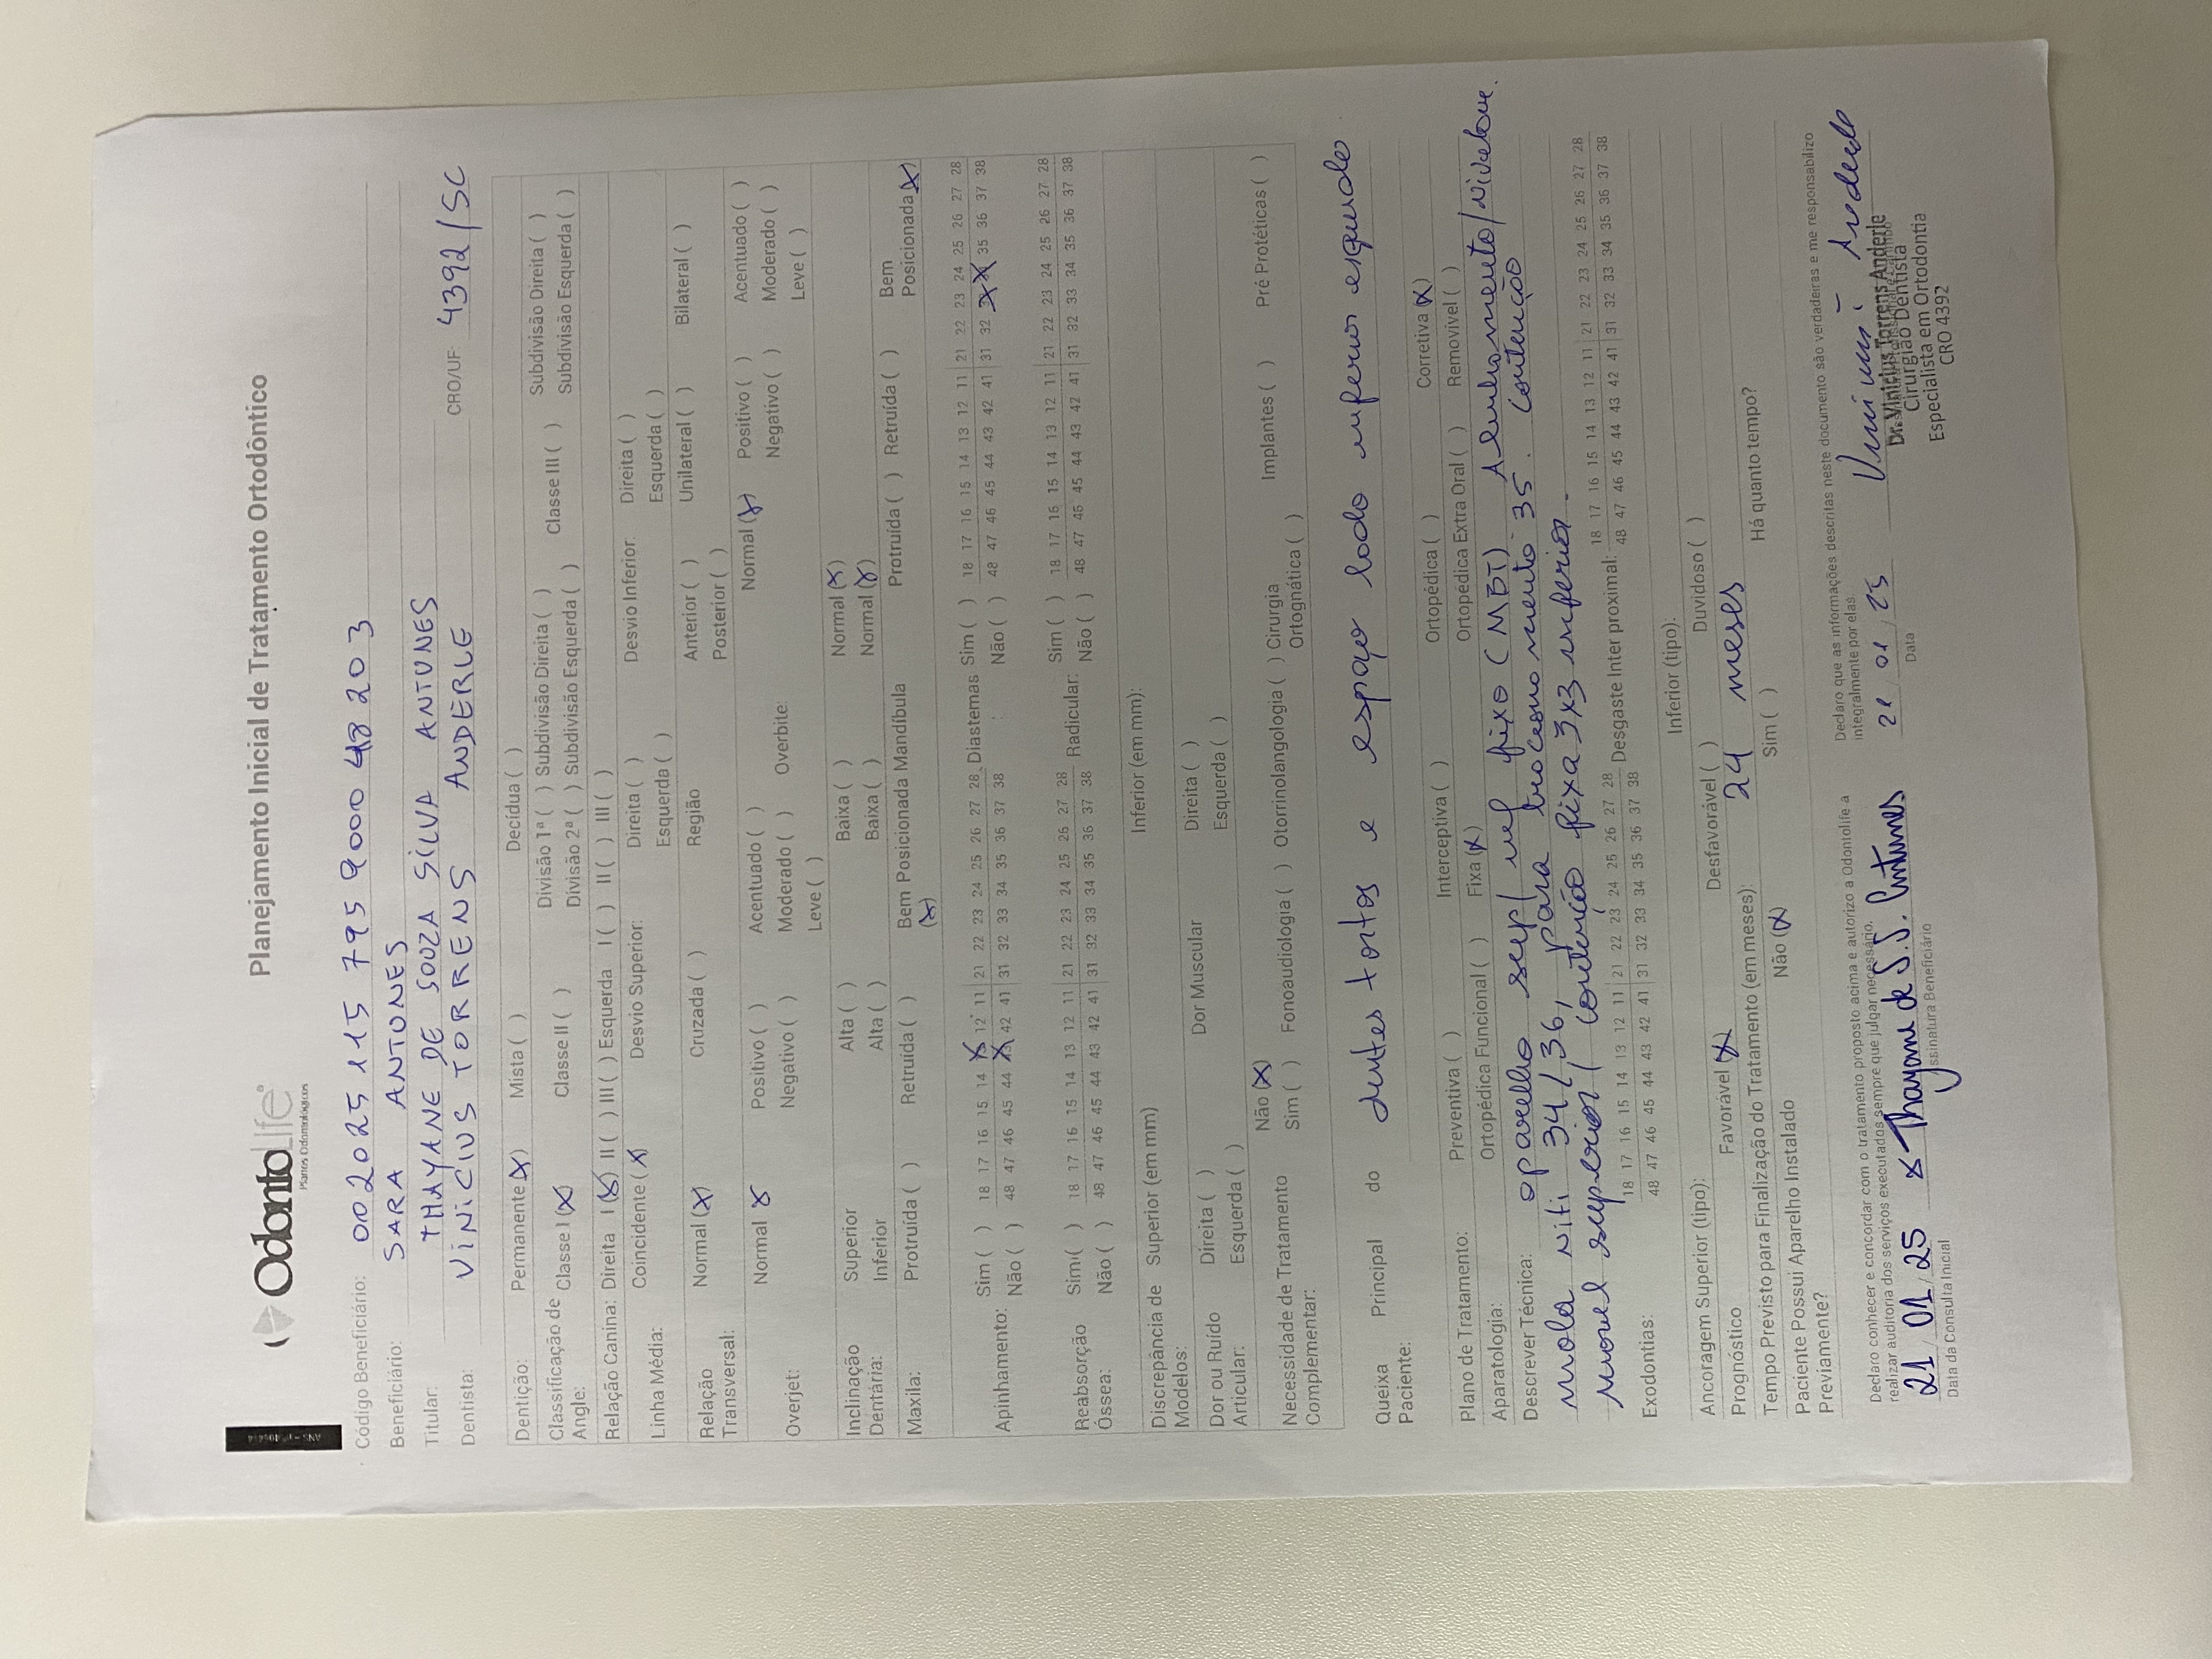 OdontoLife
Planos Odontológicos
Planejamento Inicial de Tratamento Ortodôntico
Código Beneficiário: 002025 115 795 9000 48 203
Beneficiário: SARA ANTUNES
Titular: THAYANE DE SOUZA SILVA ANTUNES
Dentista: VINICIUS TORRENS ANDERLE CRO/UF: 4392/SC
Dentição: Permanente (X) Mista ( ) Decídua ( )
Classificação de Angle: Classe I (X) Classe II ( ) Divisão 1ª ( ) Subdivisão Direita ( ) Classe III ( ) Subdivisão Direita ( )
Divisão 2ª ( ) Subdivisão Esquerda ( ) Subdivisão Esquerda ( )
Relação Canina: Direita I (X) II ( ) III ( ) Esquerda I ( ) II ( ) III ( )
Linha Média: Coincidente (X) Desvio Superior: Direita ( ) Desvio Inferior: Direita ( )
Esquerda ( ) Esquerda ( )
Relação Transversal: Normal (X) Cruzada ( ) Região Anterior ( ) Unilateral ( ) Bilateral ( )
Posterior ( )
Overjet: Normal X Positivo ( ) Acentuado ( ) Overbite: Normal (X) Positivo ( ) Acentuado ( )
Negativo ( ) Moderado ( ) Negativo ( ) Moderado ( )
Leve ( ) Leve ( )
Inclinação Dentária: Superior Alta ( ) Baixa ( ) Normal (X)
Inferior Alta ( ) Baixa ( ) Normal (X)
Maxila: Protruída ( ) Retruída ( ) Bem Posicionada (X) Mandíbula Protruída ( ) Retruída ( ) Bem Posicionada (X)
Apinhamento: Sim ( ) 18 17 16 15 14 X 12 11 21 22 23 24 25 26 27 28 Diastemas Sim ( ) 18 17 16 15 14 13 12 11 21 22 23 24 25 26 27 28
Não ( ) 48 47 46 45 44 X 42 41 31 32 33 34 35 36 37 38 Não ( ) 48 47 46 45 44 43 42 41 31 32 X X 35 36 37 38
Reabsorção Óssea: Sim ( ) 18 17 16 15 14 13 12 11 21 22 23 24 25 26 27 28 Radicular: Sim ( ) 18 17 16 15 14 13 12 11 21 22 23 24 25 26 27 28
Não ( ) 48 47 46 45 44 43 42 41 31 32 33 34 35 36 37 38 Não ( ) 48 47 46 45 44 43 42 41 31 32 33 34 35 36 37 38
Discrepância de Modelos: Superior (em mm) Inferior (em mm):
Dor ou Ruído Articular: Direita ( ) Dor Muscular Direita ( )
Esquerda ( ) Esquerda ( )
Necessidade de Tratamento Complementar: Não (X)
Sim ( ) Fonoaudiologia ( ) Otorrinolangologia ( ) Cirurgia Ortognática ( ) Implantes ( ) Pré Protéticas ( )
Queixa Principal do Paciente: dentes tortos e espaço lado inferior esquerdo
Plano de Tratamento: Preventiva ( ) Interceptiva ( ) Ortopédica ( ) Corretiva (X)
Aparatologia: Ortopédica Funcional ( ) Fixa (X) Ortopédica Extra Oral ( ) Removivel ( )
Descrever Técnica: aparelho sup/inf fixo (MBT) Alinhamento/nivelam.
mola niti 34/36, para tracionamento 35. Contenção
movel superior/ contenção fixa 3x3 inferior.
Exodontias: 18 17 16 15 14 13 12 11 21 22 23 24 25 26 27 28 Desgaste Inter proximal: 18 17 16 15 14 13 12 11 21 22 23 24 25 26 27 28
48 47 46 45 44 43 42 41 31 32 33 34 35 36 37 38 48 47 46 45 44 43 42 41 31 32 33 34 35 36 37 38
Ancoragem Superior (tipo): Inferior (tipo):
Prognóstico Favorável (X) Desfavorável ( ) Duvidoso ( )
Tempo Previsto para Finalização do Tratamento (em meses): 24 meses
Paciente Possui Aparelho Instalado Previamente? Não (X) Sim ( ) Há quanto tempo?
Declaro conhecer e concordar com o tratamento proposto acima e autorizo a Odontolife a
realizar auditoria dos serviços executados sempre que julgar necessário.
Declaro que as informações descritas neste documento são verdadeiras e me responsabilizo
integralmente por elas.
21/01/25 x Thayane de S. S. Antunes
Data da Consulta Inicial Assinatura Beneficiário
21/01/25
Data
Dr. Vinicius Torrens Anderle
Cirurgião Dentista
Especialista em Ortodontia
CRO 4392